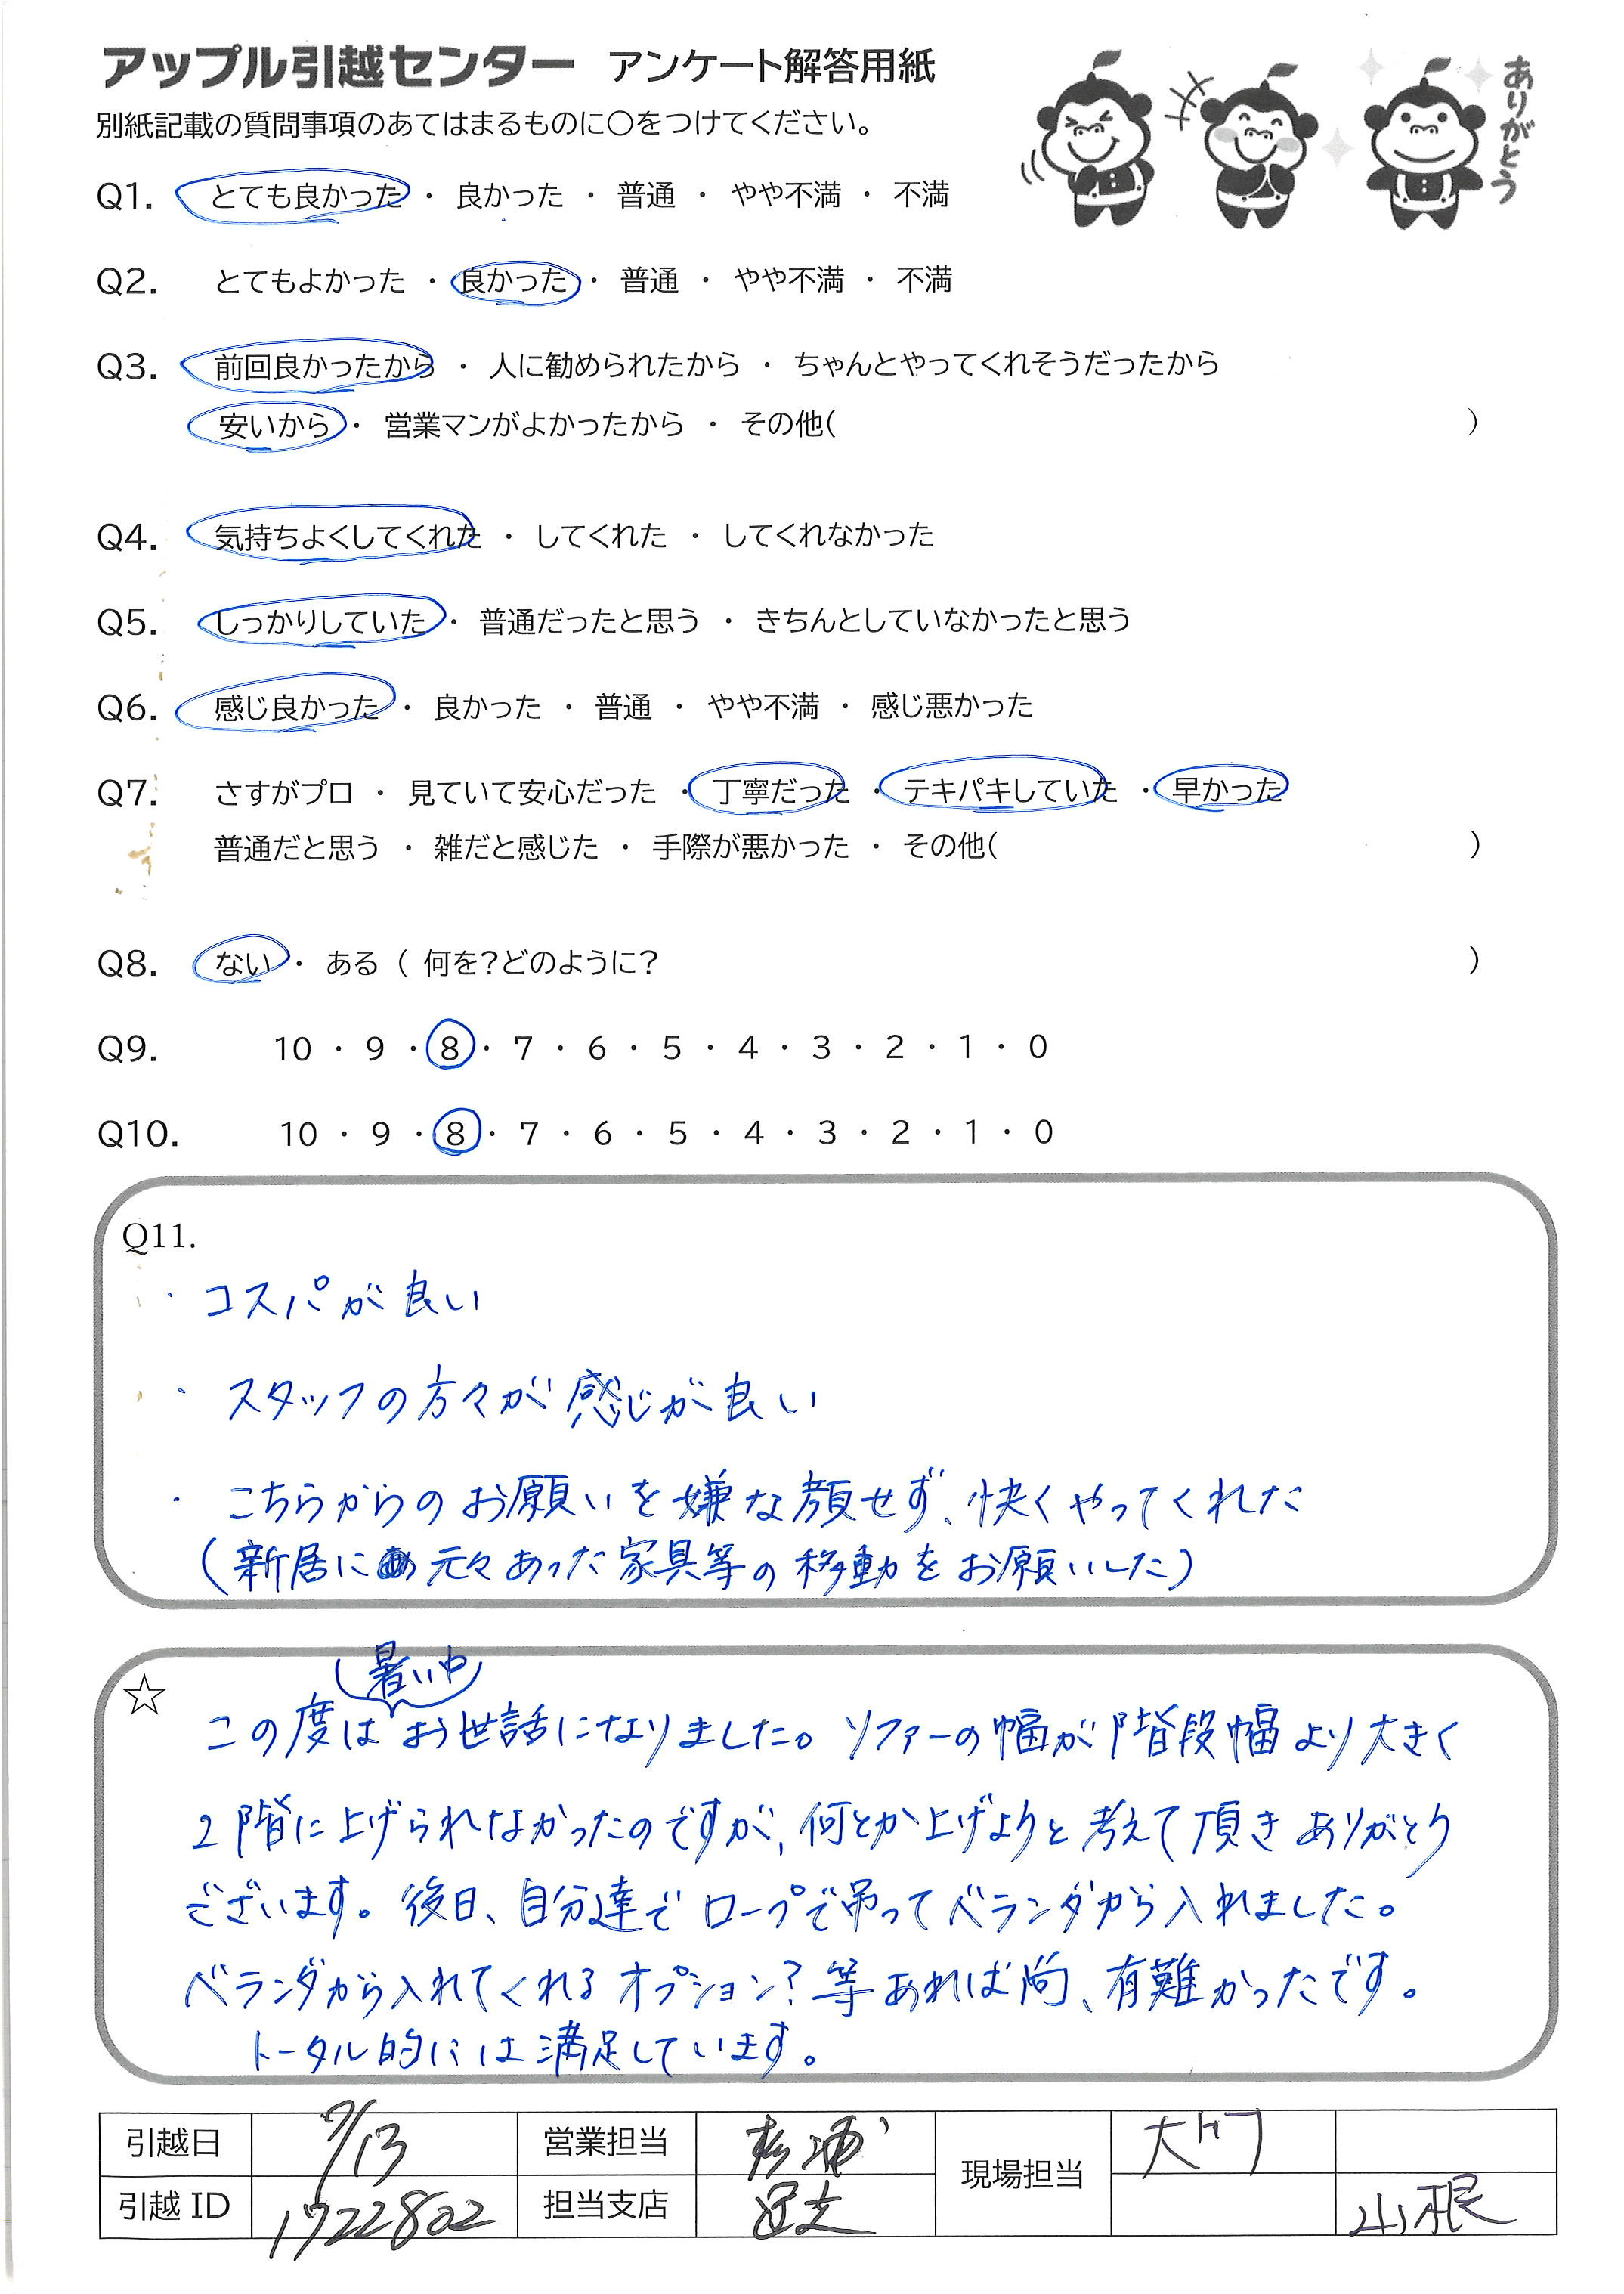 アップル引越センター アンケート解答用紙
ありがとう
別紙記載の質問事項のあてはまるものに〇をつけてください。
Q1. とても良かった ・ 良かった ・ 普通 ・ やや不満 ・ 不満
Q2. とてもよかった ・ 良かった ・ 普通 ・ やや不満 ・ 不満
Q3. 前回良かったから ・ 人に勧められたから ・ ちゃんとやってくれそうだったから
安いから ・ 営業マンがよかったから ・ その他( )
Q4. 気持ちよくしてくれた ・ してくれた ・ してくれなかった
Q5. しっかりしていた ・ 普通だったと思う ・ きちんとしていなかったと思う
Q6. 感じ良かった ・ 良かった ・ 普通 ・ やや不満 ・ 感じ悪かった
Q7. さすがプロ ・ 見ていて安心だった ・ 丁寧だった ・ テキパキしていた ・ 早かった
普通だと思う ・ 雑だと感じた ・ 手際が悪かった ・ その他( )
Q8. ない ・ ある ( 何を?どのように? )
Q9. 10 ・ 9 ・ 8 ・ 7 ・ 6 ・ 5 ・ 4 ・ 3 ・ 2 ・ 1 ・ 0
Q10. 10 ・ 9 ・ 8 ・ 7 ・ 6 ・ 5 ・ 4 ・ 3 ・ 2 ・ 1 ・ 0
Q11.
・ コスパが良い
・ スタッフの方々が感じが良い
・ こちらからのお願いを嫌な顔せず、快くやってくれた
(新居に元々あった家具等の移動をお願いした)
☆
暑い中
この度はお世話になりました。ソファーの幅が階段幅より大きく
2階に上げられなかったのですが、何とか上げようと考えて頂きありがとう
ございます。後日、自分達でロープで吊ってベランダから入れました。
ベランダから入れてくれるオプション?等あれば尚、有難かったです。
トータル的には満足しています。
引越日 7/13 営業担当 杉浦 現場担当 大竹
引越ID 1722802 担当支店 山根